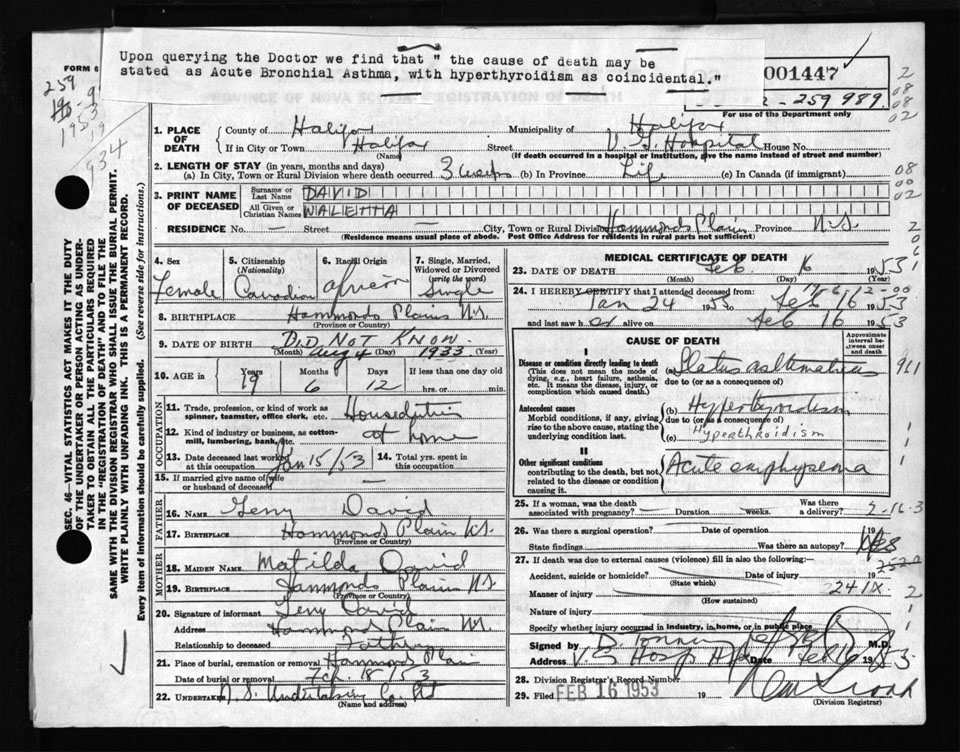 Upon querying the Doctor we find that " the cause of death may be
stated as Acute Bronchial Asthma, with hyperthyroidism as coincidental."
FORM 6
001447
259 989
For use of the Department only
1. PLACE OF DEATH
County of Halifax Municipality of Halifax
If in City or Town Halifax Street V. G. Hospital House No.
(Name) (If death occurred in a hospital or institution, give the name instead of street and number)
2. LENGTH OF STAY (in years, months and days)
(a) In City, Town or Rural Division where death occurred 3 weeks (b) In Province Life (c) In Canada (if immigrant)
3. PRINT NAME OF DECEASED
Surname or Last Name DAVID
All Given or Christian Names WALETHA
RESIDENCE No. — Street — City, Town or Rural Division Hammonds Plain Province N.S.
(Residence means usual place of abode. Post Office Address for residents in rural parts not sufficient)
4. Sex Female
5. Citizenship (Nationality) Canadian
6. Racial Origin
7. Single, Married, Widowed or Divorced (write the word) Single
8. BIRTHPLACE Hammonds Plains N.S.
(Province or Country)
9. DATE OF BIRTH DID NOT KNOW.
(Month) Aug 4 (Day) 1933 (Year)
10. AGE Years 19 Months 6 Days 12 If less than one day old hrs. or min.
OCCUPATION
11. Trade, profession, or kind of work as spinner, teamster, office clerk, etc. Houseduties
12. Kind of industry or business, as cotton-mill, lumbering, bank, etc. at home
13. Date deceased last worked at this occupation Jan 15/53
14. Total yrs. spent in this occupation
15. If married give name of wife or husband of deceased —
FATHER
16. NAME David
17. BIRTHPLACE Hammonds Plain N.S.
(Province or Country)
MOTHER
18. MAIDEN NAME Matilda David
19. BIRTHPLACE Hammonds Plain N.S.
(Province or Country)
20. Signature of informant David
Address Hammond Plain N.S.
Relationship to deceased Father
21. Place of burial, cremation or removal Hammonds Plain
Date of burial or removal Feb. 18/53
22. UNDERTAKER
(Name and address)
MEDICAL CERTIFICATE OF DEATH
23. DATE OF DEATH Feb 16 1953
(Month) (Day)
24. I HEREBY CERTIFY that I attended deceased from:
Jan 24 1953 to Feb 16 1953
and last saw her alive on Feb 16 1953
CAUSE OF DEATH
Approximate interval between onset and death
I
Disease or condition directly leading to death
(This does not mean the mode of dying, e.g., heart failure, asthenia, etc. It means the disease, injury, or complication which caused death.)
(a) Status asthmaticus
due to (or as a consequence of)
Antecedent causes
Morbid conditions, if any, giving rise to the above cause, stating the underlying condition last.
(b) Hyperthyroidism
due to (or as a consequence of)
(c) Hyperthroidism
II
Other significant conditions contributing to the death, but not related to the disease or condition causing it.
Acute emphysema
25. If a woman, was the death associated with pregnancy? — Duration weeks. Was there a delivery?
26. Was there a surgical operation? Date of operation 19
State findings Was there an autopsy?
27. If death was due to external causes (violence) fill in also the following:
Accident, suicide or homicide? Date of injury 19
(State which)
Manner of injury 241X
(How sustained)
Nature of injury
Specify whether injury occurred in industry, in home, or in public place
Signed by M.D.
Address V. G. Hosp Date Feb 16 1953
28. Division Registrar's Record Number
29. Filed FEB 16 1953 19
(Division Registrar)
SEC. 46—VITAL STATISTICS ACT MAKES IT THE DUTY
OF THE UNDERTAKER OR PERSON ACTING AS UNDER-
TAKER TO OBTAIN ALL THE PARTICULARS REQUIRED
IN THE "REGISTRATION OF DEATH" AND TO FILE THE
SAME WITH THE DIVISION REGISTRAR WHO SHALL ISSUE THE BURIAL PERMIT.
WRITE PLAINLY WITH UNFADING INK. THIS IS A PERMANENT RECORD.
Every item of information should be carefully supplied. (See reverse side for instructions.)